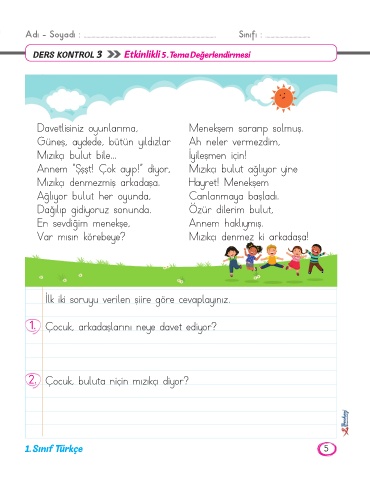 Adı - Soyadı : ................................................ Sınıfı : ................
DERS KONTROL 3 Etkinlikli 5. Tema Değerlendirmesi
Davetlisiniz oyunlarıma,
Güneş, aydede, bütün yıldızlar
Mızıkçı bulut bile...
Annem "Şşşt! Çok ayıp!" diyor,
Mızıkçı denmezmiş arkadaşa.
Ağlıyor bulut her oyunda,
Dağılıp gidiyoruz sonunda.
En sevdiğim menekşe,
Var mısın körebeye?
Menekşem sararıp solmuş.
Ah neler vermezdim,
İyileşmen için!
Mızıkçı bulut ağlıyor yine
Hayret! Menekşem
Canlanmaya başladı.
Özür dilerim bulut,
Annem haklıymış.
Mızıkçı denmez ki arkadaşa!
İlk iki soruyu verilen şiire göre cevaplayınız.
1. Çocuk, arkadaşlarını neye davet ediyor?
2. Çocuk, buluta niçin mızıkçı diyor?
1. Sınıf Türkçe
5